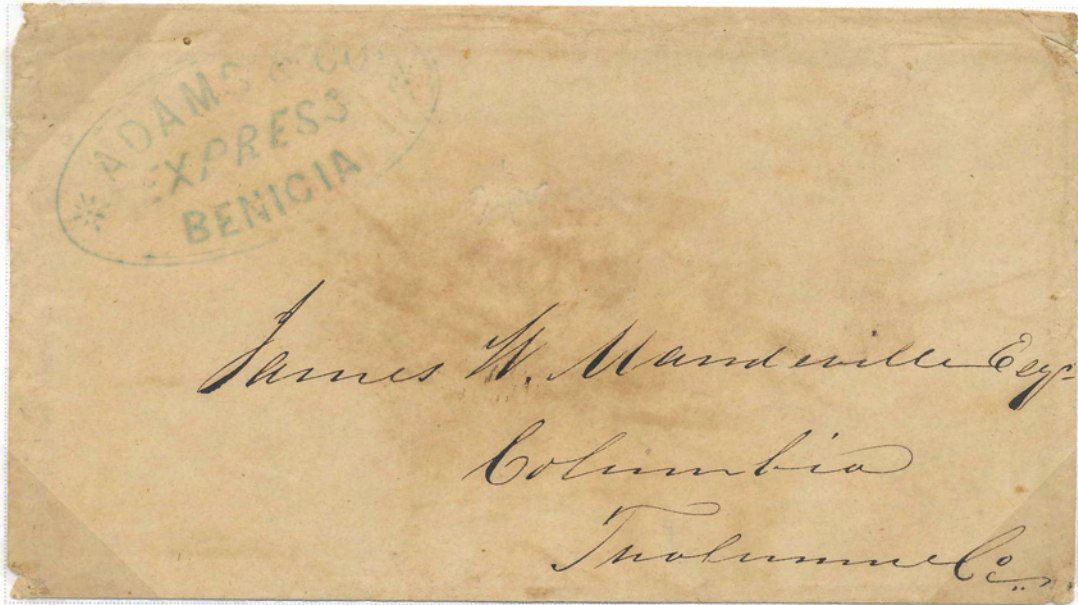 ADAMS & Co.
EXPRESS
BENICIA
James W. Mandeville Esqr
Columbia
Tuolumne Co.